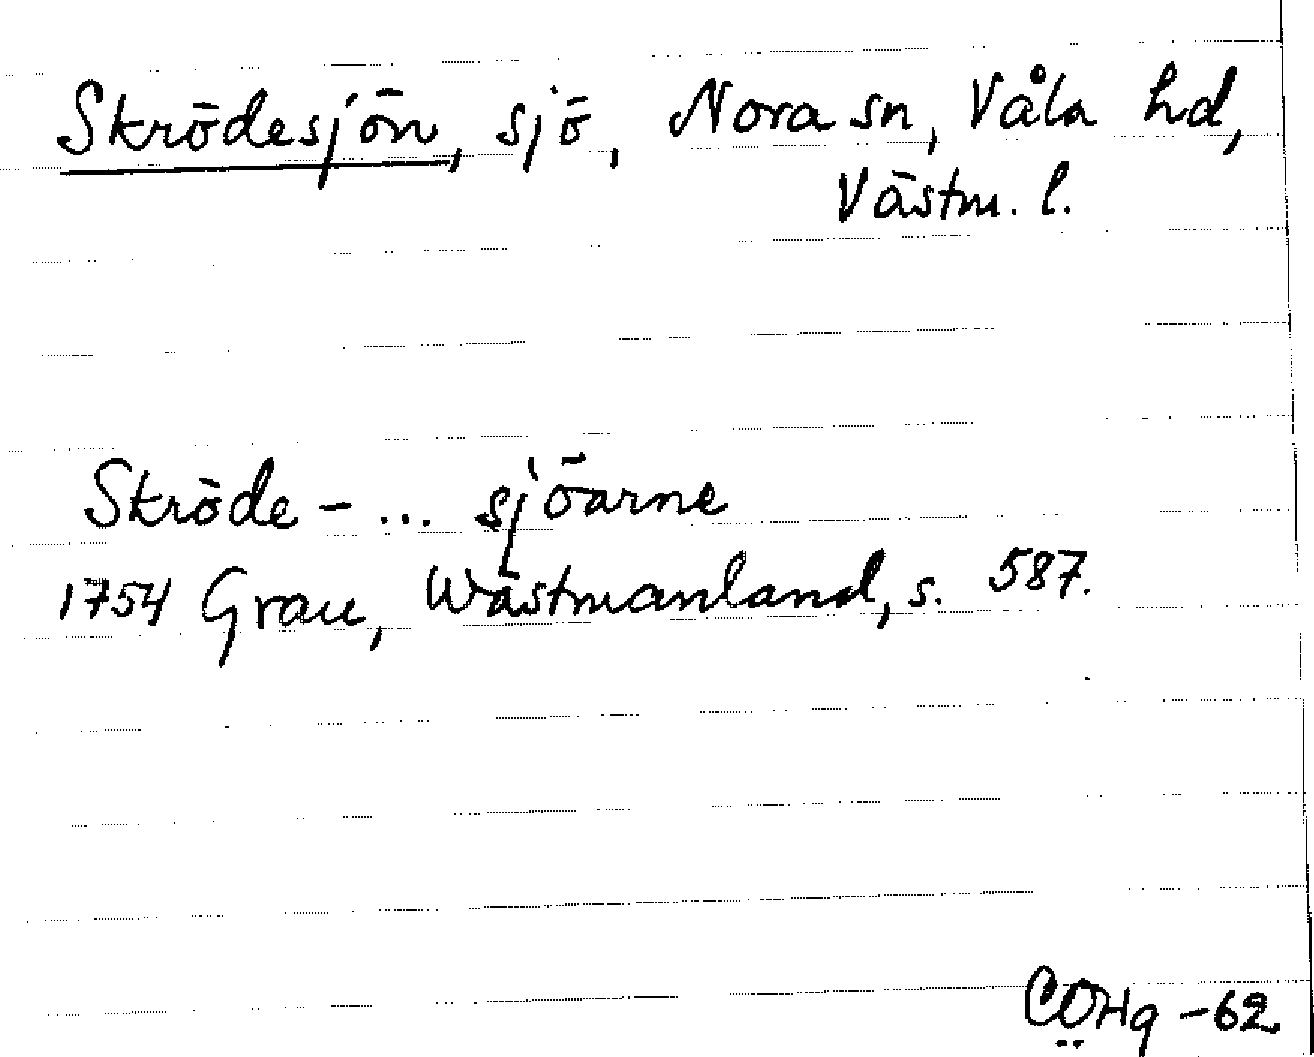 Skrödesjön, sjö, Nora sn, Våla hd,
Västm. l.
Skröde - ... sjöarne
1754 Grau, Wästmanland, s. 587.
CÖHg -62